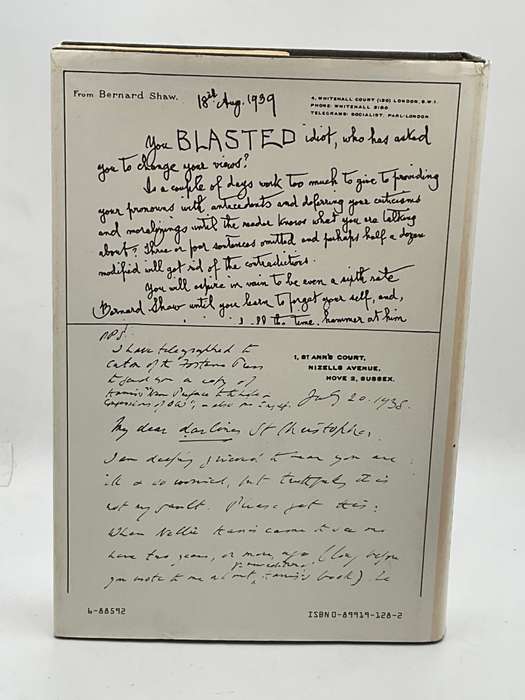 From Bernard Shaw.
18th Aug. 1939
4, WHITEHALL COURT (130) LONDON, S.W.1.
PHONE: WHITEHALL 3160
TELEGRAMS: SOCIALIST, PARL-LONDON
You BLASTED idiot, who has asked
you to change your views?
Is a couple of days work too much to give to providing
your pronouns with antecedents and deferring your criticisms
and moralizings until the reader knows what you are talking
about? Three or four sentences omitted and perhaps half a dozen
modified will get rid of the contradictions.
You will aspire in vain to be even a sixth rate
Bernard Shaw until you learn to forget your self, and,
all the time, hammer at him
PPS.
I have telegraphed to
Caton of the Fortune Press
to send you a copy of
1, ST ANN'S COURT,
NIZELLS AVENUE,
HOVE 2, SUSSEX.
July 20. 1938.
My dear darling St Christopher.
I am deeply grieved to hear you are
ill & so worried, but truthfully it is
not my fault. Please get this:
When Nellie Harris came to see me
have two years, or more, ago (long before
you wrote to me about Harris's book) he
6-88592
ISBN 0-89919-128-2